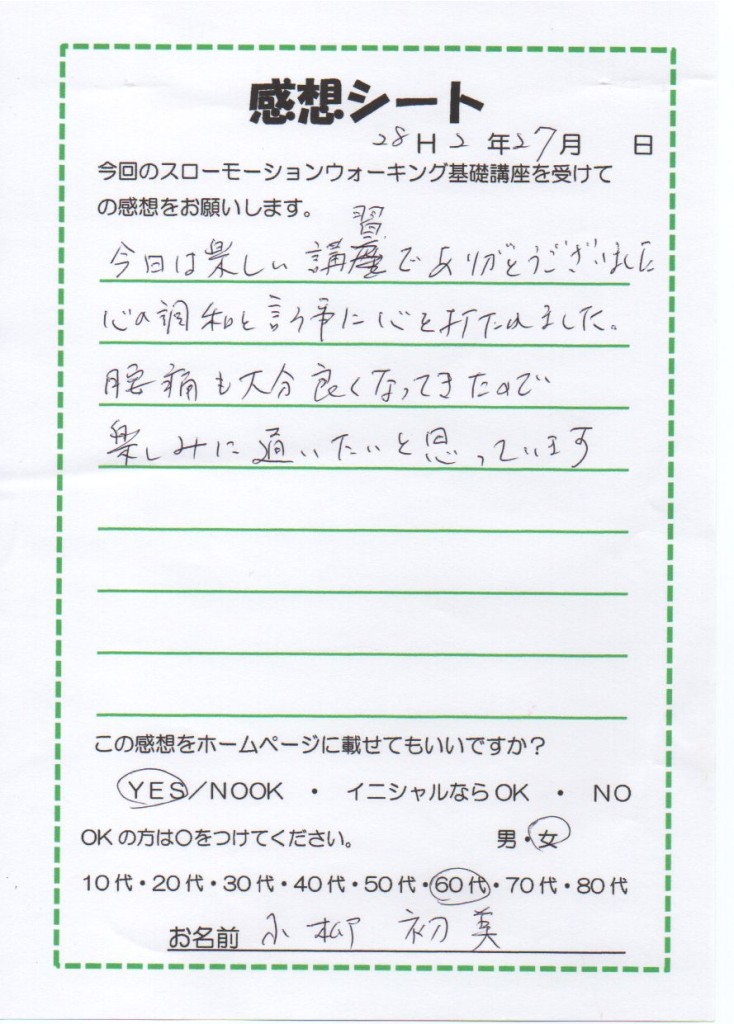 感想シート
28 H 2 年 27 月 日
今回のスローモーションウォーキング基礎講座を受けて
の感想をお願いします。
今日は楽しい講習でありがとうございました
心の調和と言う事に心を打たれました。
腰痛も大分良くなってきたので
楽しみに通いたいと思っています
この感想をホームページに載せてもいいですか？
YES/NOOK ・ イニシャルなら OK ・ NO
OK の方は○をつけてください。 男・女
10代・20代・30代・40代・50代・60代・70代・80代
お名前 小柳 初美